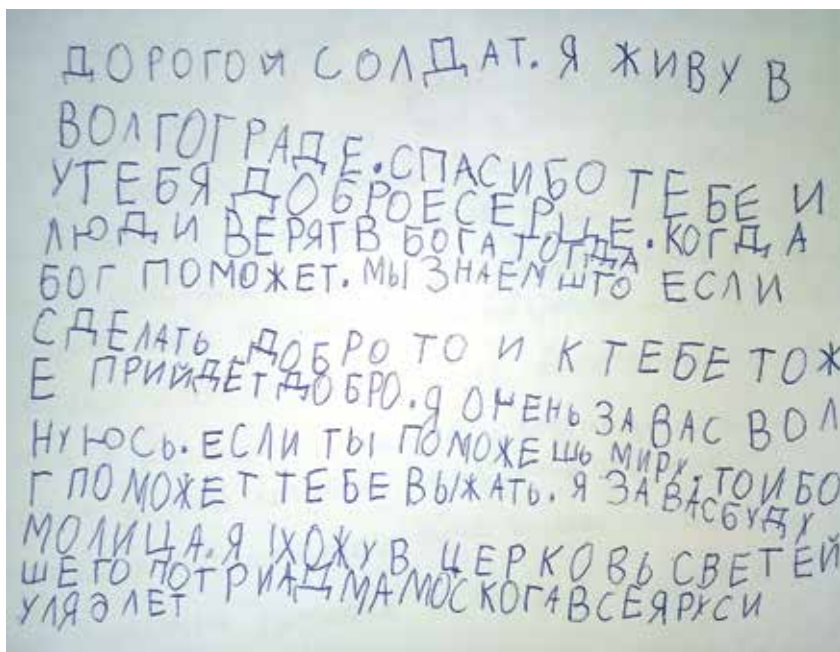 ДОРОГОЙ СОЛДАТ. Я ЖИВУ В
ВОЛГОГРАДЕ. СПАСИБО ТЕБЕ И
УТЕБЯ ДОБРОЕСЕРДЦЕ. КОГДА
ЛЮДИ ВЕРЯТВ БОГА ТОГДА
БОГ ПОМОЖЕТ. МЫ ЗНАЕМ ШТО ЕСЛИ
СДЕЛАТЬ ДОБРО ТО И К ТЕБЕ ТОЖ
Е ПРИЙДЕТ ДОБРО. Я ОЧЕНЬ ЗА ВАС ВОЛ
НУЮСЬ. ЕСЛИ ТЫ ПОМОЖЕШЬ МИРУ. ТО И БО
Г ПОМОЖЕТ ТЕБЕ ВЫЖАТЬ. Я ЗА ВАСБУДУ
МОЛИЦА. Я ХОЖУ В ЦЕРКОВЬ СВЕТЕЙ
ШЕГО МОСКОГА ВСЕЯ РУСИ
ЛЕТ